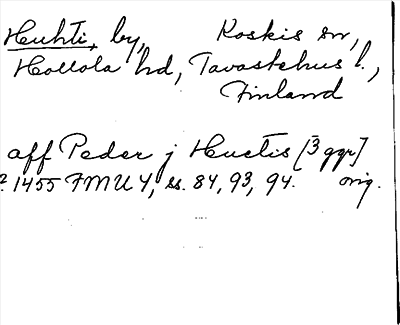 Huhti, by, Koskis sn,
Hollola hd, Tavastehus l.,
Finland
aff Peder j Huctis [3 ggr]
? 1455 FMU 4, ss. 84, 93, 94. orig.